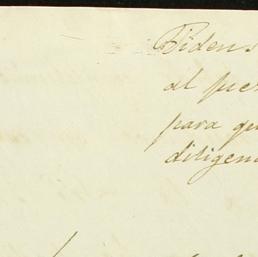 Pidens
al pres
para qu
diligen